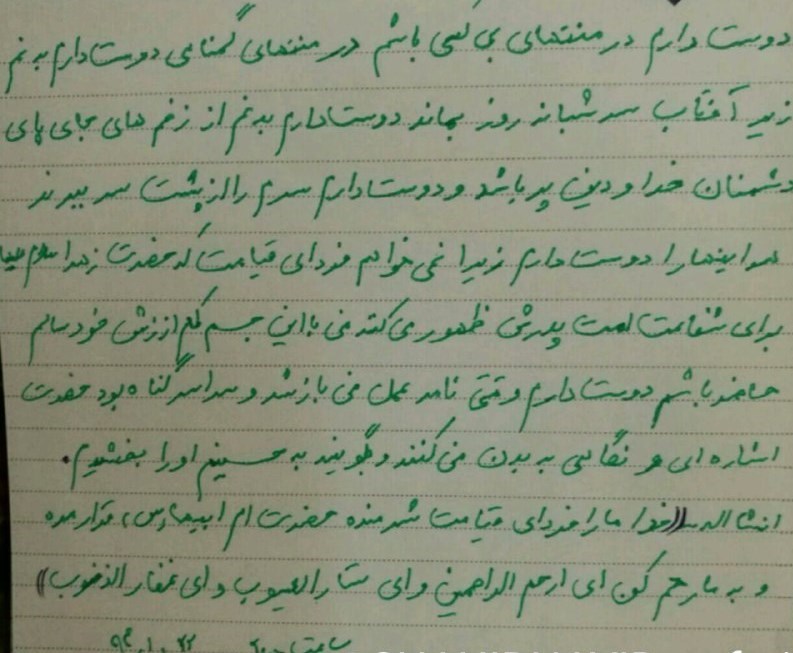 دوست دارم در منتهای بی کسی باشم در منتهای گمنامی دوست دارم بدنم
زیر آفتاب سه شبانه روز بماند دوست دارم بدنم از زخم های جای پای
دشمنان خدا و دین پر باشد و دوست دارم سرم را از پشت سر ببرند
همه اینها را دوست دارم زیرا نمی خواهم فردای قیامت که حضرت زهرا سلام علیها
برای شفاعت امت پدرش ظهور می کند من با این جسم کم ارزش خود سالم
حاضر باشم دوست دارم وقتی نامه عمل من باز شد و سراسر گناه بود حضرت
اشاره ای و نگاهی به بدن من کنند و بگویند به حسینم او را بخشیدم.
انشااله ((خدا ما را فردای قیامت شرمنده حضرت ام ابیها (س) قرار مده
و به ما رحم کن ای ارحم الراحمین و ای ستار العیوب و ای غفار الذنوب))
ساعت